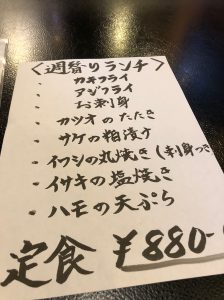 <週替りランチ>
・カキフライ
・アジフライ
・お刺身
・カツオのたたき
・サケの粕漬け
・イワシの丸焼き(刺身つき
・イサキの塩焼き
・ハモの天ぷら
定食 ¥880-